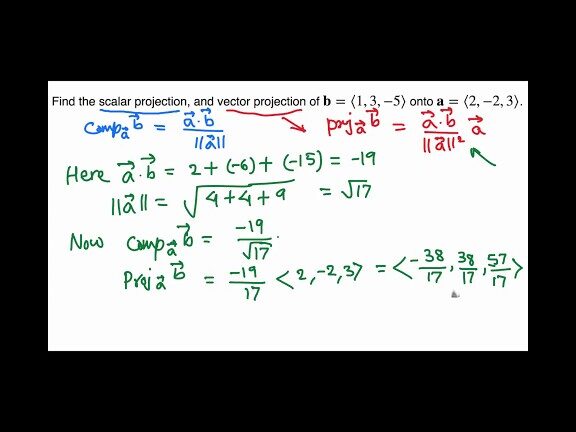 Find the scalar projection, and vector projection of b = ⟨1, 3, −5⟩ onto a = ⟨2, −2, 3⟩.
comp_a⃗ b⃗ = a⃗·b⃗ / ||a⃗||    proj_a⃗ b⃗ = a⃗·b⃗ / ||a⃗||² a⃗
Here a⃗·b⃗ = 2 + (-6) + (-15) = -19
||a⃗|| = √(4+4+9) = √17
Now comp_a⃗ b⃗ = -19/√17.
Proj_a⃗ b⃗ = -19/17 <2, -2, 3> = <-38/17, 38/17, 57/17>